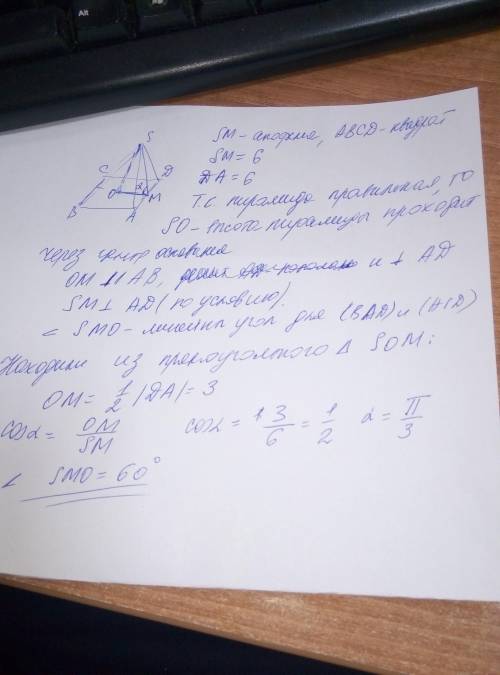 Alt
S
C
D
O
α
M
B
A
SM - апофема, ABCD - квадрат
SM = 6
DA = 6
Т.к. пирамида правильная, то
SO - высота пирамиды проходит
через центр основания
OM || AB, и ⊥ AD
SM ⊥ AD (по условию).
∠ SMO - линейный угол для (BAD) и (ASD)
Находим из прямоугольного Δ SOM:
OM = 1/2 |DA| = 3
cosα = OM/SM cosα = 3/6 = 1/2 α = π/3
∠ SMO = 60°